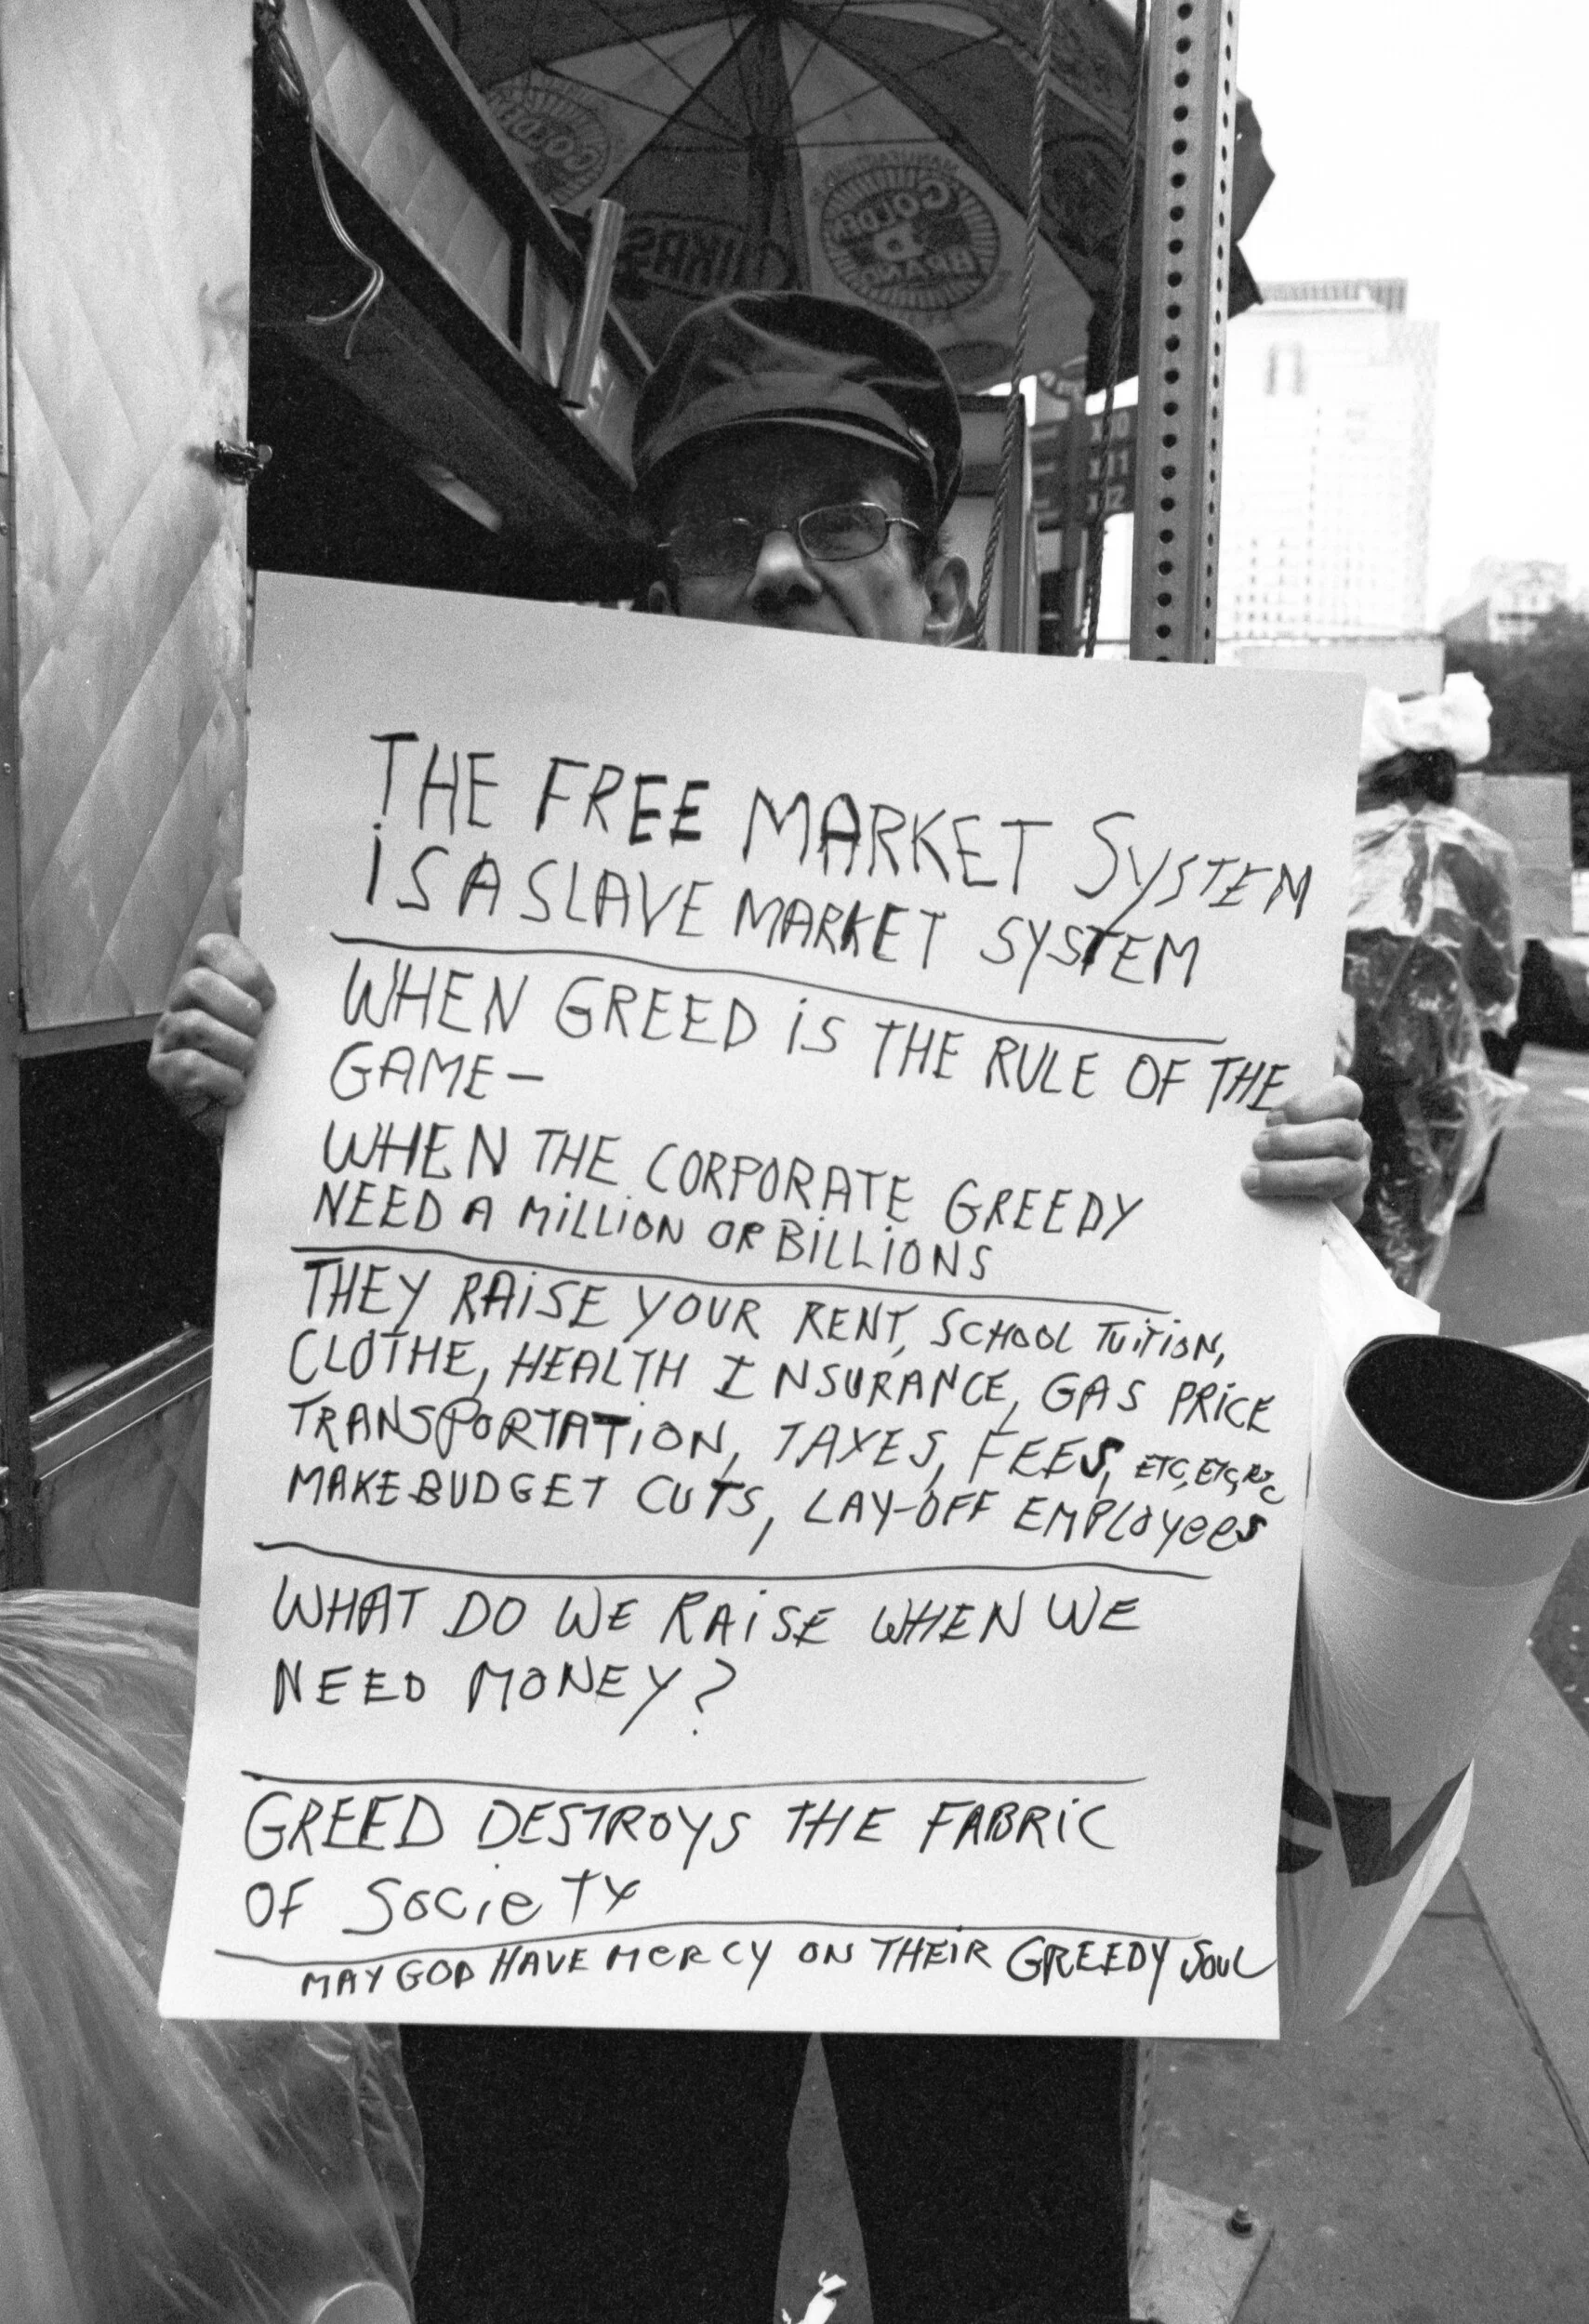 GOLDEN
D
BRAND
THE FREE MARKET SYSTEM
iS A SLAVE MARKET SYSTEM
WHEN GREED iS THE RULE OF THE
GAME—
WHEN THE CORPORATE GREEDY
NEED A MiLLiON OR BiLLiONS
THEY RAiSE YOUR RENT, SCHOOL TUiTiON,
CLOTHE, HEALTH INSURANCE, GAS PRiCE
TRANSPORTATiON, TAXES, FEES, ETC, ETC, ETC
MAKE BUDGET CUTS, LAY-OFF EMPLOYees
WHAT DO WE RAiSE WHEN WE
NEED MONEY?
GREED DESTROYS THE FABRiC
OF SocieTY
MAY GOD HAVE MeRCY ON THEiR GREEDY SOUL